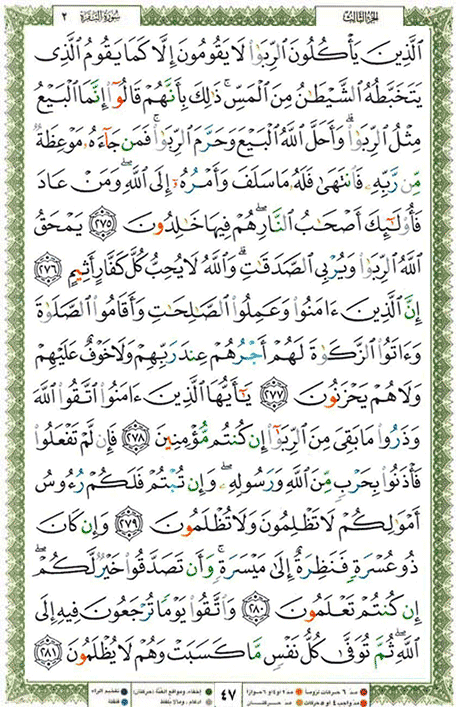 الجزء الثالث سورة البقرة ٢
ٱلَّذِينَ يَأۡكُلُونَ ٱلرِّبَوٰاْ لَا يَقُومُونَ إِلَّا كَمَا يَقُومُ ٱلَّذِى
يَتَخَبَّطُهُ ٱلشَّيۡطَٰنُ مِنَ ٱلۡمَسِّۚ ذَٰلِكَ بِأَنَّهُمۡ قَالُوٓاْ إِنَّمَا ٱلۡبَيۡعُ
مِثۡلُ ٱلرِّبَوٰاْۗ وَأَحَلَّ ٱللَّهُ ٱلۡبَيۡعَ وَحَرَّمَ ٱلرِّبَوٰاْۚ فَمَن جَآءَهُۥ مَوۡعِظَةٌ
مِّن رَّبِّهِۦ فَٱنتَهَىٰ فَلَهُۥ مَا سَلَفَ وَأَمۡرُهُۥٓ إِلَى ٱللَّهِۖ وَمَنۡ عَادَ
فَأُوْلَٰٓئِكَ أَصۡحَٰبُ ٱلنَّارِۖ هُمۡ فِيهَا خَٰلِدُونَ ٢٧٥ يَمۡحَقُ
ٱللَّهُ ٱلرِّبَوٰاْ وَيُرۡبِى ٱلصَّدَقَٰتِۗ وَٱللَّهُ لَا يُحِبُّ كُلَّ كَفَّارٍ أَثِيمٍ ٢٧٦
إِنَّ ٱلَّذِينَ ءَامَنُواْ وَعَمِلُواْ ٱلصَّٰلِحَٰتِ وَأَقَامُواْ ٱلصَّلَوٰةَ
وَءَاتَوُاْ ٱلزَّكَوٰةَ لَهُمۡ أَجۡرُهُمۡ عِندَ رَبِّهِمۡ وَلَا خَوۡفٌ عَلَيۡهِمۡ
وَلَا هُمۡ يَحۡزَنُونَ ٢٧٧ يَٰٓأَيُّهَا ٱلَّذِينَ ءَامَنُواْ ٱتَّقُواْ ٱللَّهَ
وَذَرُواْ مَا بَقِىَ مِنَ ٱلرِّبَوٰٓاْ إِن كُنتُم مُّؤۡمِنِينَ ٢٧٨ فَإِن لَّمۡ تَفۡعَلُواْ
فَأۡذَنُواْ بِحَرۡبٍ مِّنَ ٱللَّهِ وَرَسُولِهِۦۖ وَإِن تُبۡتُمۡ فَلَكُمۡ رُءُوسُ
أَمۡوَٰلِكُمۡ لَا تَظۡلِمُونَ وَلَا تُظۡلَمُونَ ٢٧٩ وَإِن كَانَ
ذُو عُسۡرَةٍ فَنَظِرَةٌ إِلَىٰ مَيۡسَرَةٍۚ وَأَن تَصَدَّقُواْ خَيۡرٌ لَّكُمۡۖ
إِن كُنتُمۡ تَعۡلَمُونَ ٢٨٠ وَٱتَّقُواْ يَوۡمًا تُرۡجَعُونَ فِيهِ إِلَى
ٱللَّهِۖ ثُمَّ تُوَفَّىٰ كُلُّ نَفۡسٍ مَّا كَسَبَتۡ وَهُمۡ لَا يُظۡلَمُونَ ٢٨١
مد ٦ حركات لزوماً مد ٢ او ٤ او ٦ جوازاً ٤٧ إخفاء، ومواقع الغنّة (حركتان) تفخيم الراء
مد واجب ٤ او ٥ حركات مد حركتان ادغام، وما لا يُلفظ قلقلة